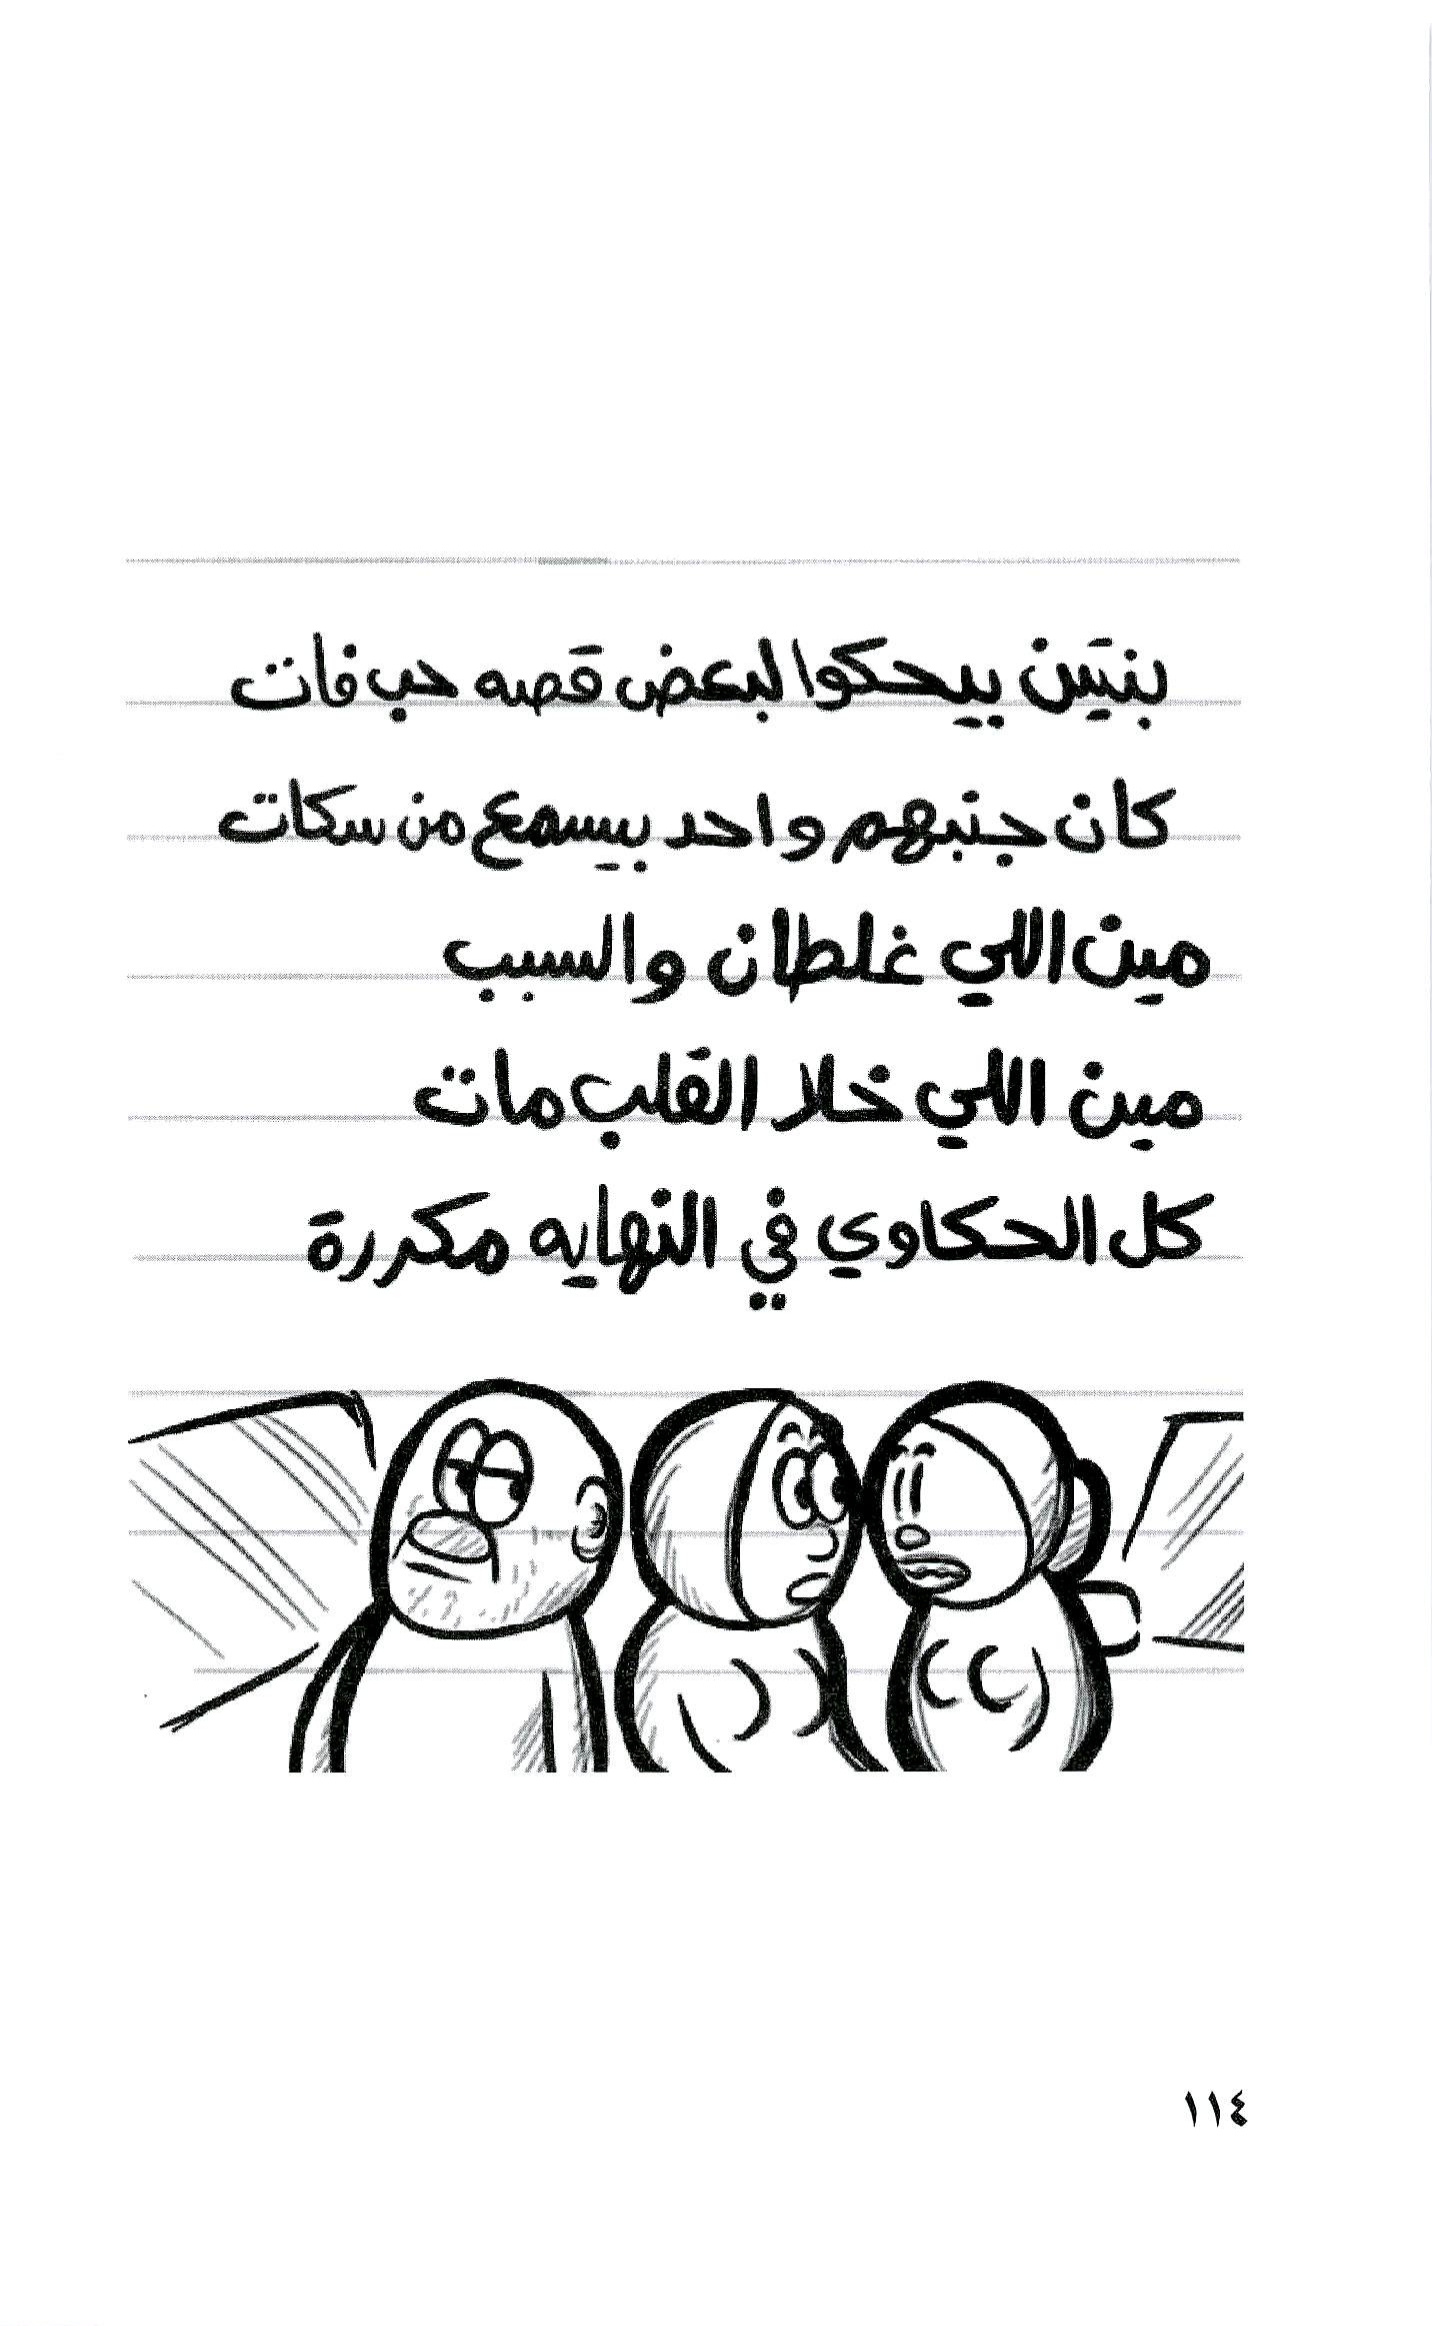 بنتين بيحكوا لبعض قصه حب فات
كان جنبهم واحد بيسمع من سكات
مين اللي غلطان والسبب
مين اللي خلا القلب مات
كل الحكاوي في النهايه مكررة
١١٤